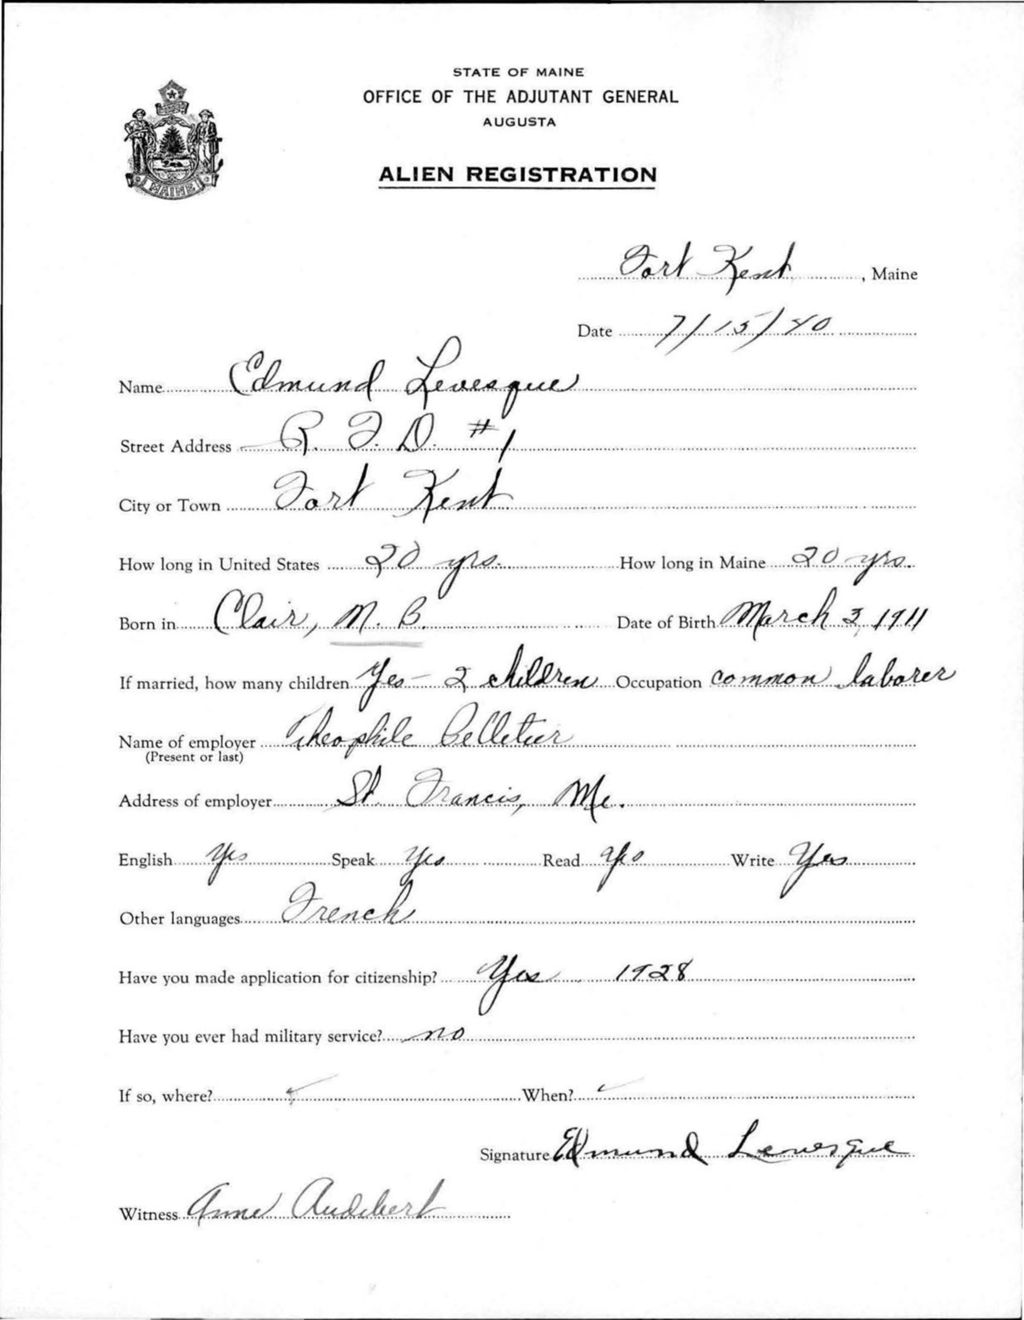 STATE OF MAINE
OFFICE OF THE ADJUTANT GENERAL
AUGUSTA
ALIEN REGISTRATION
MAINE
Fort Kent, Maine
Date 7/15/40
Name Edmund Levesque
Street Address R. F. D. #1
City or Town Fort Kent
How long in United States 20 yrs. How long in Maine 20 yrs.
Born in Clair, N. B. Date of Birth March 3, 1911
If married, how many children Yes - 2 children Occupation common laborer
Name of employer Theophile Pelletier
(Present or last)
Address of employer St. Francis, Me.
English Yes Speak Yes Read Yes Write Yes
Other languages French
Have you made application for citizenship? Yes 1928
Have you ever had military service? no
If so, where? When?
Signature Edmund Levesque
Witness Anne Audibert